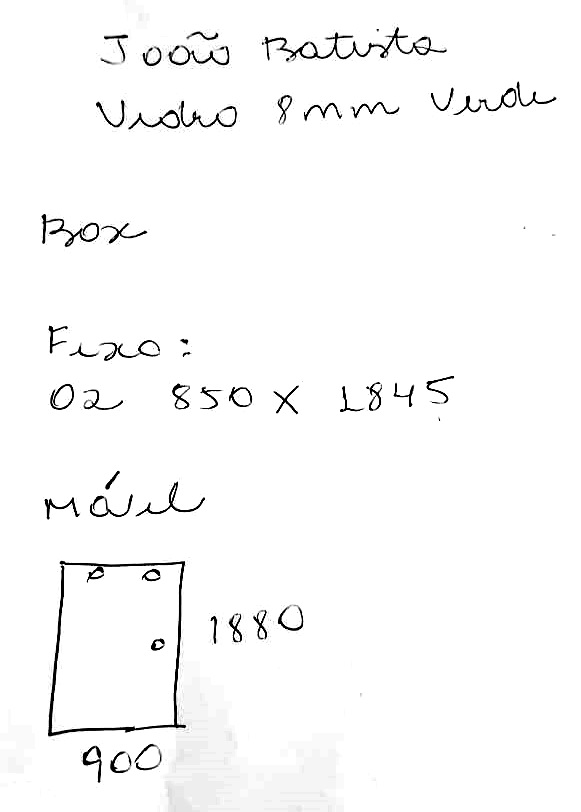 João Batista
Vidro 8mm Verde
Box
Fixo:
02 850 X 1845
Móvel
1880
900